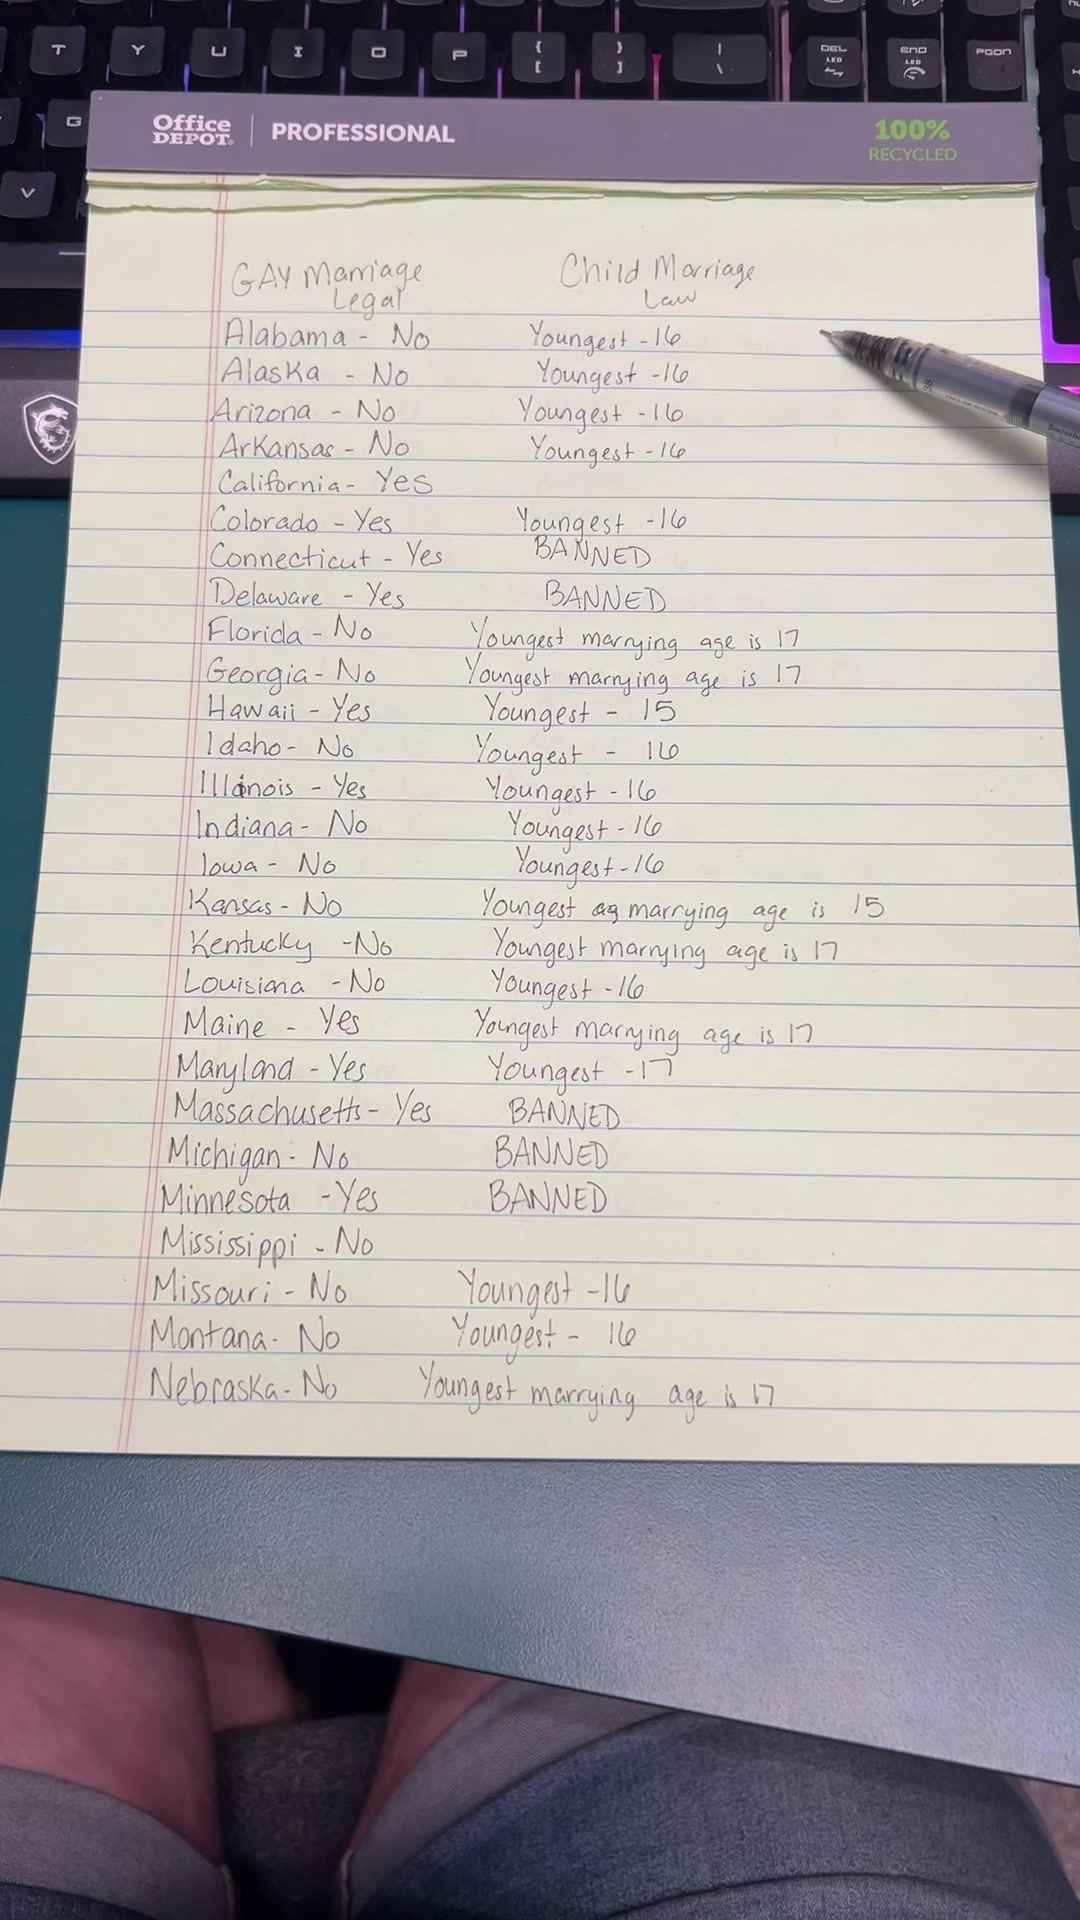 T Y U I O P { [ } ] | \ DEL LED END LED PGDN
G
V
Office DEPOT PROFESSIONAL 100% RECYCLED
GAY Marriage Legal Child Marriage Law
Alabama - No Youngest - 16
Alaska - No Youngest - 16
Arizona - No Youngest - 16
Arkansas - No Youngest - 16
California - Yes
Colorado - Yes Youngest - 16
Connecticut - Yes BANNED
Delaware - Yes BANNED
Florida - No Youngest marrying age is 17
Georgia - No Youngest marrying age is 17
Hawaii - Yes Youngest - 15
Idaho - No Youngest - 16
Illinois - Yes Youngest - 16
Indiana - No Youngest - 16
Iowa - No Youngest - 16
Kansas - No Youngest ag marrying age is 15
Kentucky - No Youngest marrying age is 17
Louisiana - No Youngest - 16
Maine - Yes Youngest marrying age is 17
Maryland - Yes Youngest - 17
Massachusetts - Yes BANNED
Michigan - No BANNED
Minnesota - Yes BANNED
Mississippi - No
Missouri - No Youngest - 16
Montana - No Youngest - 16
Nebraska - No Youngest marrying age is 17